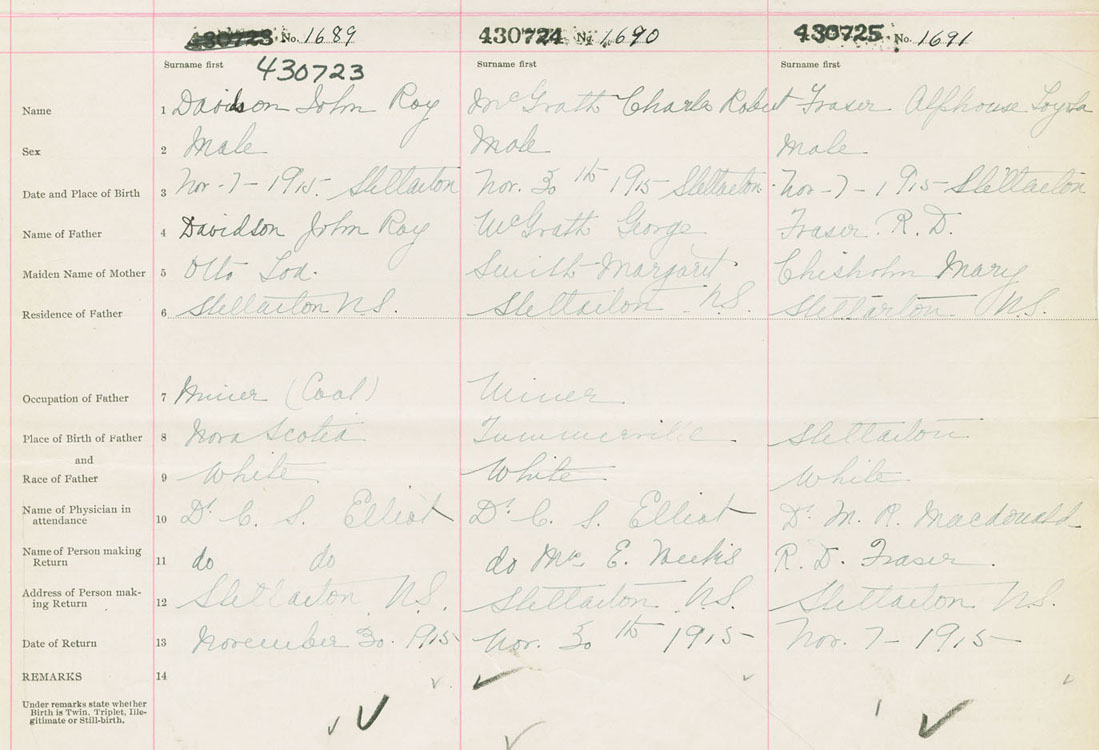 430723 No. 1689 430724 No. 1690 430725 No. 1691
Surname first 430723 Surname first Surname first
Name 1 Davidson John Roy McGrath Charles Robert Fraser Alphonse Loyola
Sex 2 Male Male Male
Date and Place of Birth 3 Nov-7-1915. Stellarton Nov. 30th 1915 Stellarton. Nov-7-1915-Stellarton
Name of Father 4 Davidson John Roy McGrath George Fraser. R. D.
Maiden Name of Mother 5 Smith Margaret. Chisholm Mary
Residence of Father 6 Stellarton N.S. Stellarton N.S. Stellarton N.S.
Occupation of Father 7 Miner (Coal) Miner
Place of Birth of Father 8 Nova Scotia Stellarton
and
Race of Father 9 White White White
Name of Physician in
attendance 10 Dr C. S. Elliot Dr C. S. Elliot Dr. M. R. Macdonald
Name of Person making
Return 11 do do do E. R. D. Fraser.
Address of Person mak-
ing Return 12 Stellarton N.S. Stellarton N.S. Stellarton N.S.
Date of Return 13 November 30. 1915 Nov. 30th 1915 Nov. 7-1915
REMARKS 14
Under remarks state whether
Birth is Twin, Triplet, Ille-
gitimate or Still-birth.